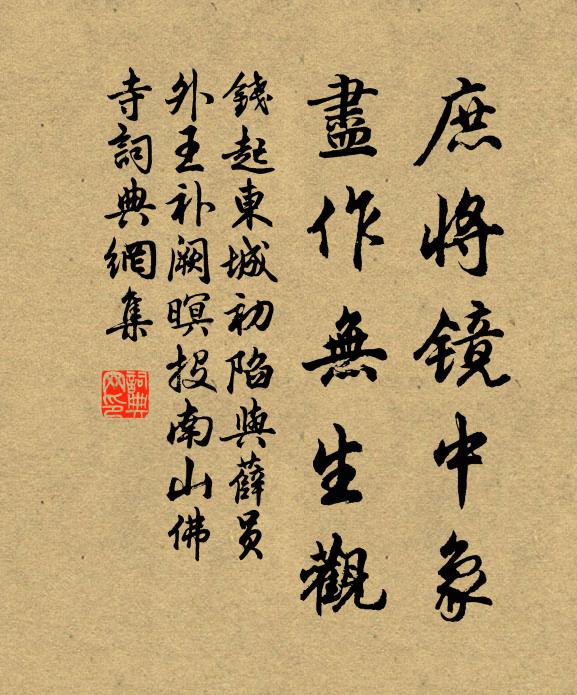 庶将镜中象
盡作無生觀
錢起東城初陷與薛员
外王补阙暝投南山佛
寺詞典網集
詞典
网印